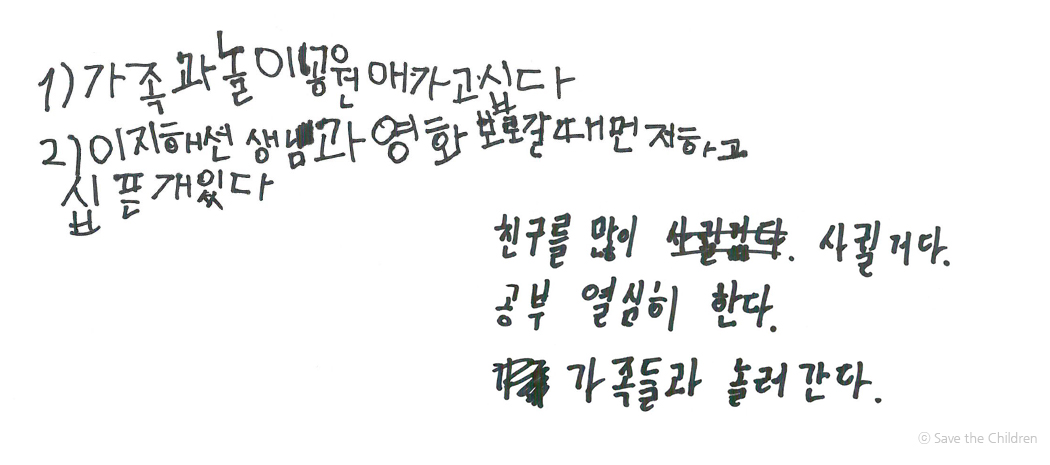 1) 가족과놀이공원애가고십다
2) 이지해선생님과영화보로갈때먼저하고
십픈개있다
친구를 많이 사귈거다. 사귈거다.
공부 열심히 한다.
가족들과 놀러간다.
ⓒ Save the Children